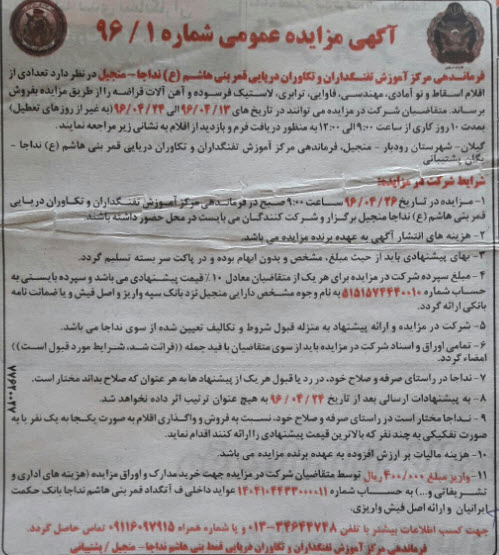 آگهی مزایده عمومی شماره ۹۶/۱
فرماندهی مرکز آموزش تفنگداران و تکاوران دریایی قمر بنی هاشم (ع) نداجا- منجیل در نظر دارد تعدادی از
اقلام اسقاط و نو آمادی، مهندسی، فاوایی، ترابری، لاستیک فرسوده و آهن آلات قراضه را از طریق مزایده بفروش
برساند. متقاضیان شرکت در مزایده می توانند در تاریخ های ۹۶/۰۴/۱۳ الی ۹۶/۰۴/۲۴ (به غیر از روزهای تعطیل)
بمدت ۱۰ روز کاری از ساعت ۹:۰۰ الی ۱۲:۰۰ به منظور دریافت فرم و بازدید از اقلام به نشانی زیر مراجعه نمایند.
گیلان- شهرستان رودبار - منجیل، فرماندهی مرکز آموزش تفنگداران و تکاوران دریایی قمر بنی هاشم (ع) نداجا -
یگان پشتیبانی
شرایط شرکت در مزایده:
۱- مزایده در تاریخ ۹۶/۰۴/۲۶ ساعت ۹:۰۰ صبح در فرماندهی مرکز آموزش تفنگداران و تکاوران دریایی
قمر بنی هاشم (ع) نداجا منجیل برگزار و شرکت کنندگان می بایست در محل حضور داشته باشند.
۲- هزینه های انتشار آگهی به عهده برنده مزایده می باشد.
۳- بهای پیشنهادی باید از حیث مبلغ، مشخص و بدون ابهام بوده و در پاکت سر بسته تسلیم گردد.
۴- مبلغ سپرده شرکت در مزایده برای هر یک از متقاضیان معادل ۱۰٪ قیمت پیشنهادی می باشد و سپرده بایستی به
حساب شماره ۵۱۵۱۵۷۴۴۴۰۰۱۰ به نام وجوه مشخص دارایی منجیل نزد بانک سپه واریز و اصل فیش و یا ضمانت نامه
بانکی ارائه گردد.
۵- شرکت در مزایده و ارائه پیشنهاد به منزله قبول شروط و تکالیف تعیین شده از سوی نداجا می باشد.
۶- تمامی اوراق و اسناد شرکت در مزایده باید از سوی متقاضیان با قید جمله ((قرائت شد، شرایط مورد قبول است))
امضاء گردد.
۷- نداجا در راستای صرفه و صلاح خود، در رد یا قبول هر یک از پیشنهاد ها به هر عنوان که صلاح بداند مختار است.
۸- به پیشنهادات ارسالی بعد از تاریخ ۹۶/۰۴/۲۴ به هیچ عنوان ترتیب اثر داده نخواهد شد.
۹- نداجا مختار است در راستای صرفه و صلاح خود، نسبت به فروش و واگذاری اقلام به صورت یکجا به یک نفر یا به
صورت تفکیکی به چند نفر که بالاترین قیمت پیشنهادی را ارائه کنند اقدام نماید.
۱۰- هزینه مالیات بر ارزش افزوده به عهده برنده مزایده می باشد.
۱۱- واریز مبلغ ۴۰۰/۰۰۰ ریال توسط متقاضیان شرکت در مزایده جهت خرید مدارک و اوراق مزایده (هزینه های اداری و
تشریفاتی و...) به حساب شماره ۱۴۰۴۱۰۴۴۳۳۰۰۰۰۱۱ عواید داخلی ف آتگداد قمر بنی هاشم نداجا بانک حکمت
ایرانیان و ارائه اصل فیش واریزی.
جهت کسب اطلاعات بیشتر با تلفن ۳۴۶۴۴۷۴۸-۰۱۳ و یا شماره همراه ۰۹۱۱۶۰۹۷۹۱۵ تماس حاصل گردد.
فرماندهی مرکز آموزش تفنگداران و تکاوران دریایی قمر بنی هاشم نداجا- منجیل / پشتیبانی